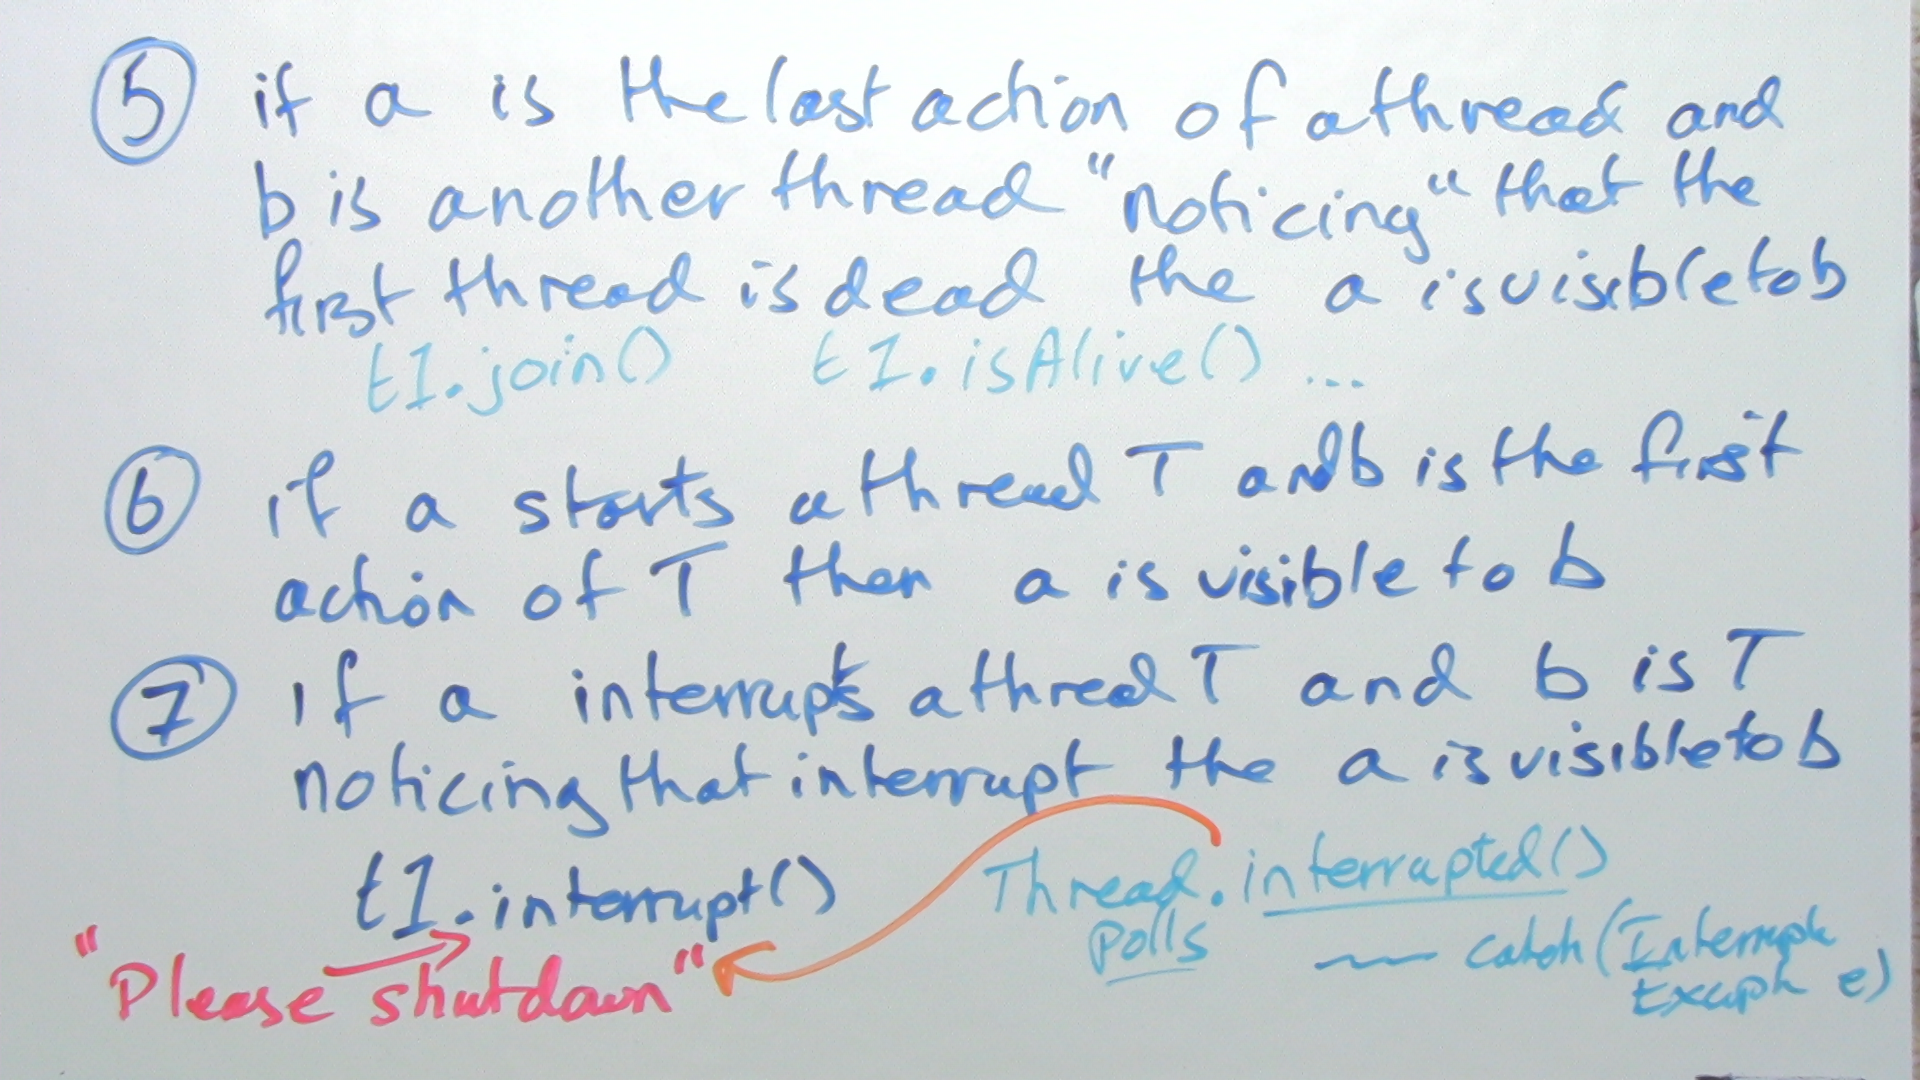 5 if a is the last action of a thread and
b is another thread "noticing" that the
first thread is dead the a is visible to b
t1.join() t1.isAlive() ...
6 if a starts a thread T and b is the first
action of T then a is visible to b
7 If a interrupts a thred T and b is T
noticing that interrupt the a is visible to b
t1.interrupt() Thread.interrupted()
Polls
catch (Interrupt
"Please shutdown"
e)